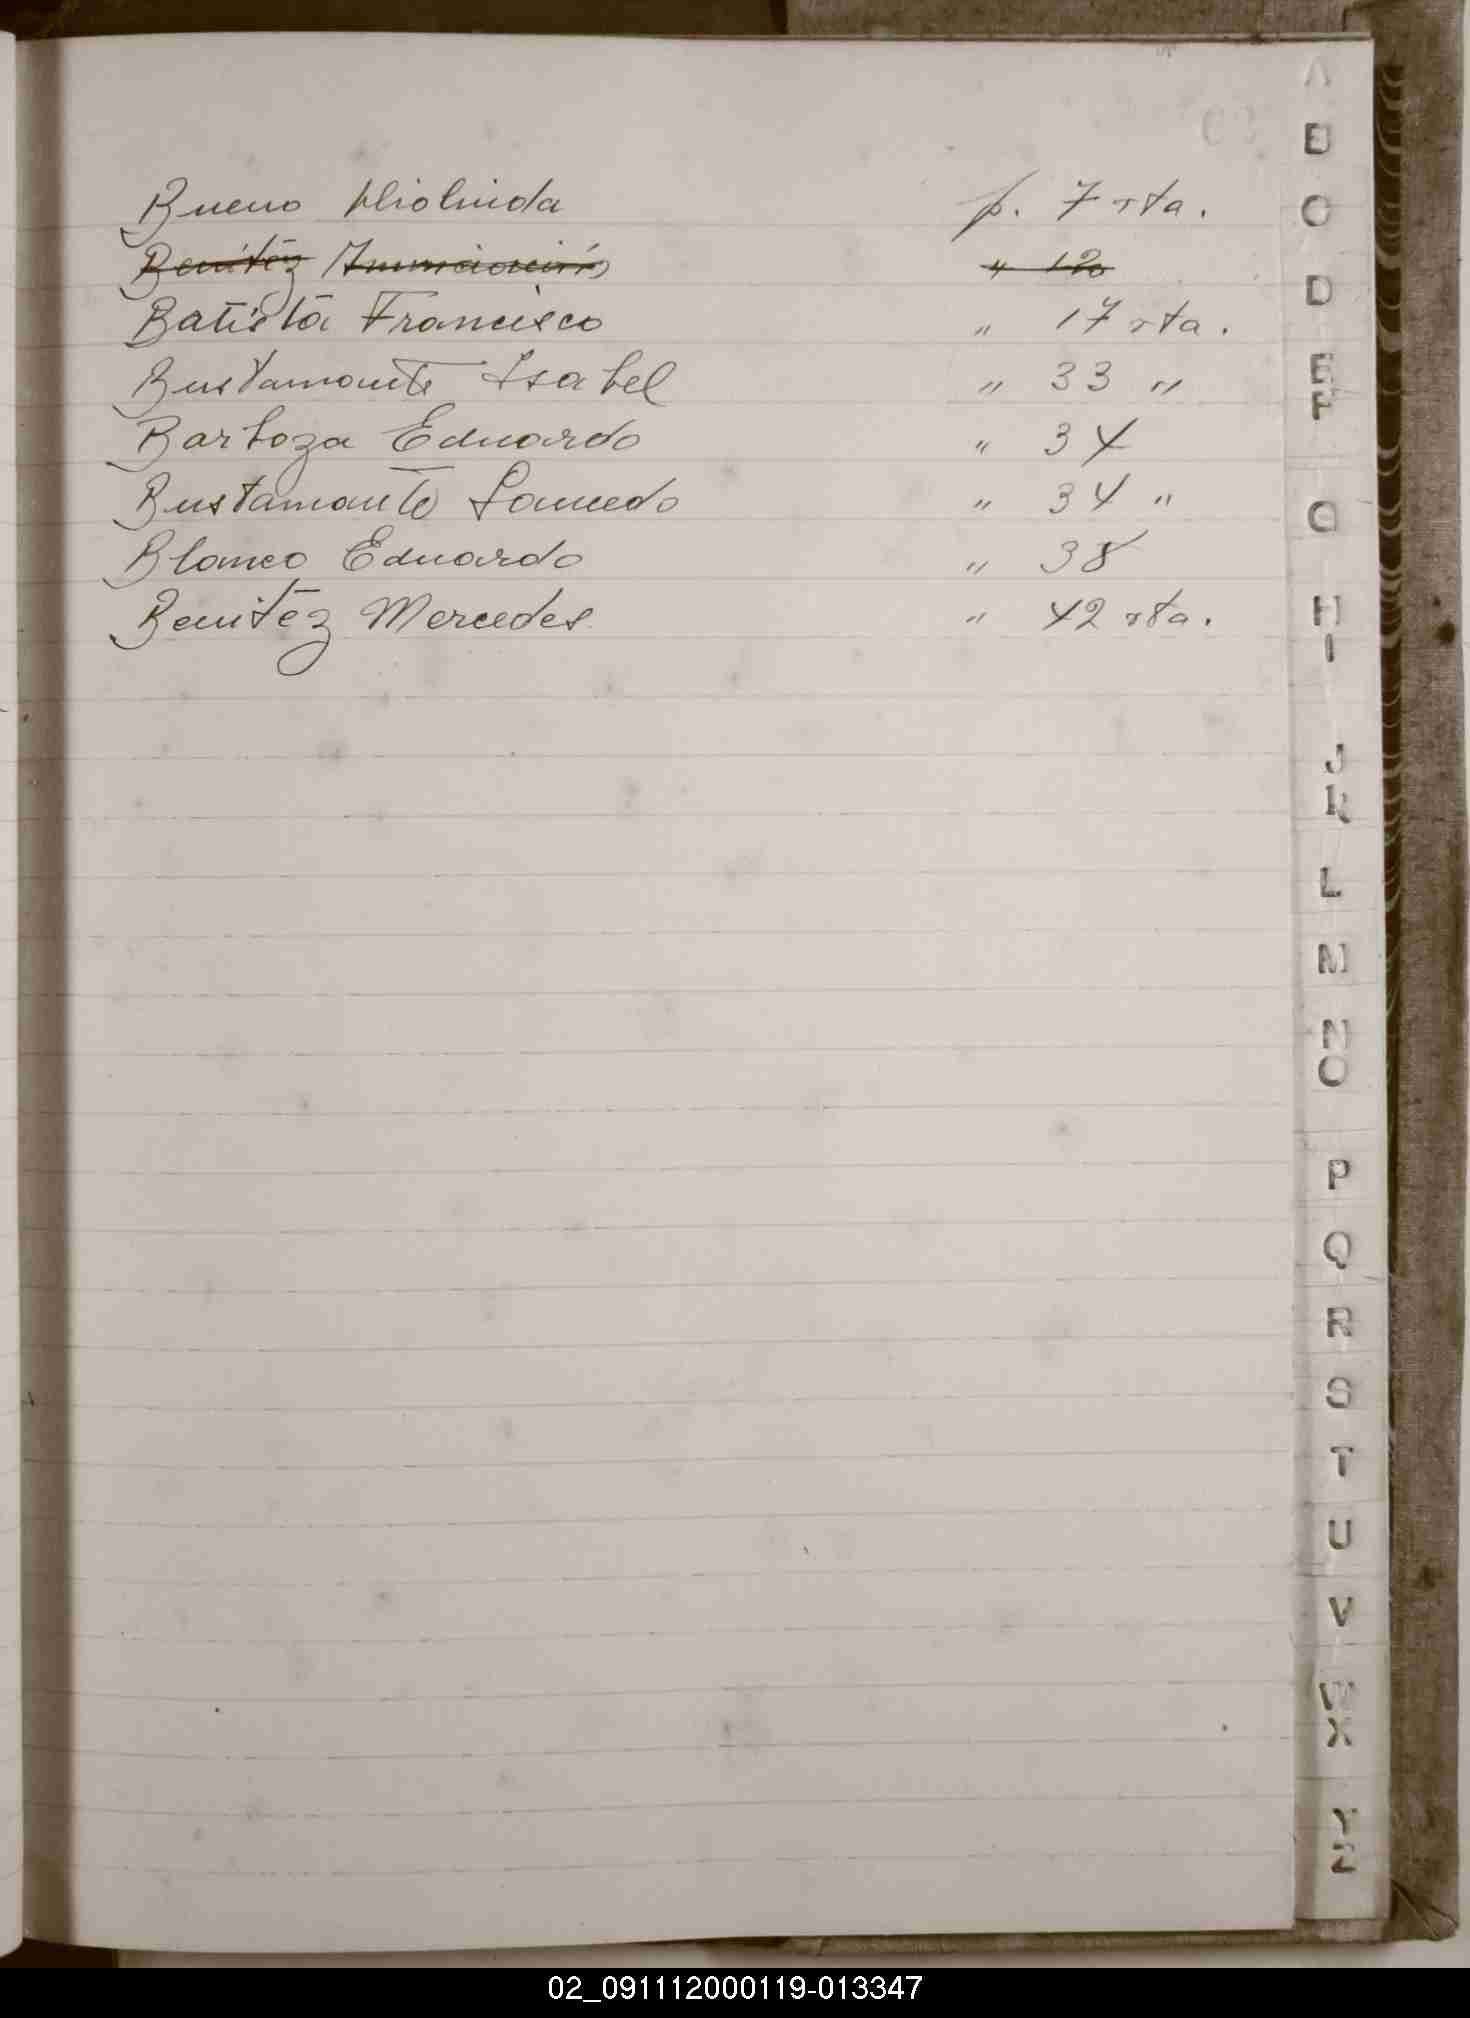 Bueno Hiolinda p. 7 rta.
Benítez " 12
Batista Francisco " 17 rta.
Bustamante Isabel " 33 "
Barboza Eduardo " 34
Bustamante " 34 "
Blanco Eduardo " 38
Benitez Mercedes " 42 rta.
A
B
C
D
E
F
G
H
I
J
K
L
M
N
O
P
Q
R
S
T
U
V
W
X
Y
Z
02_091112000119-013347